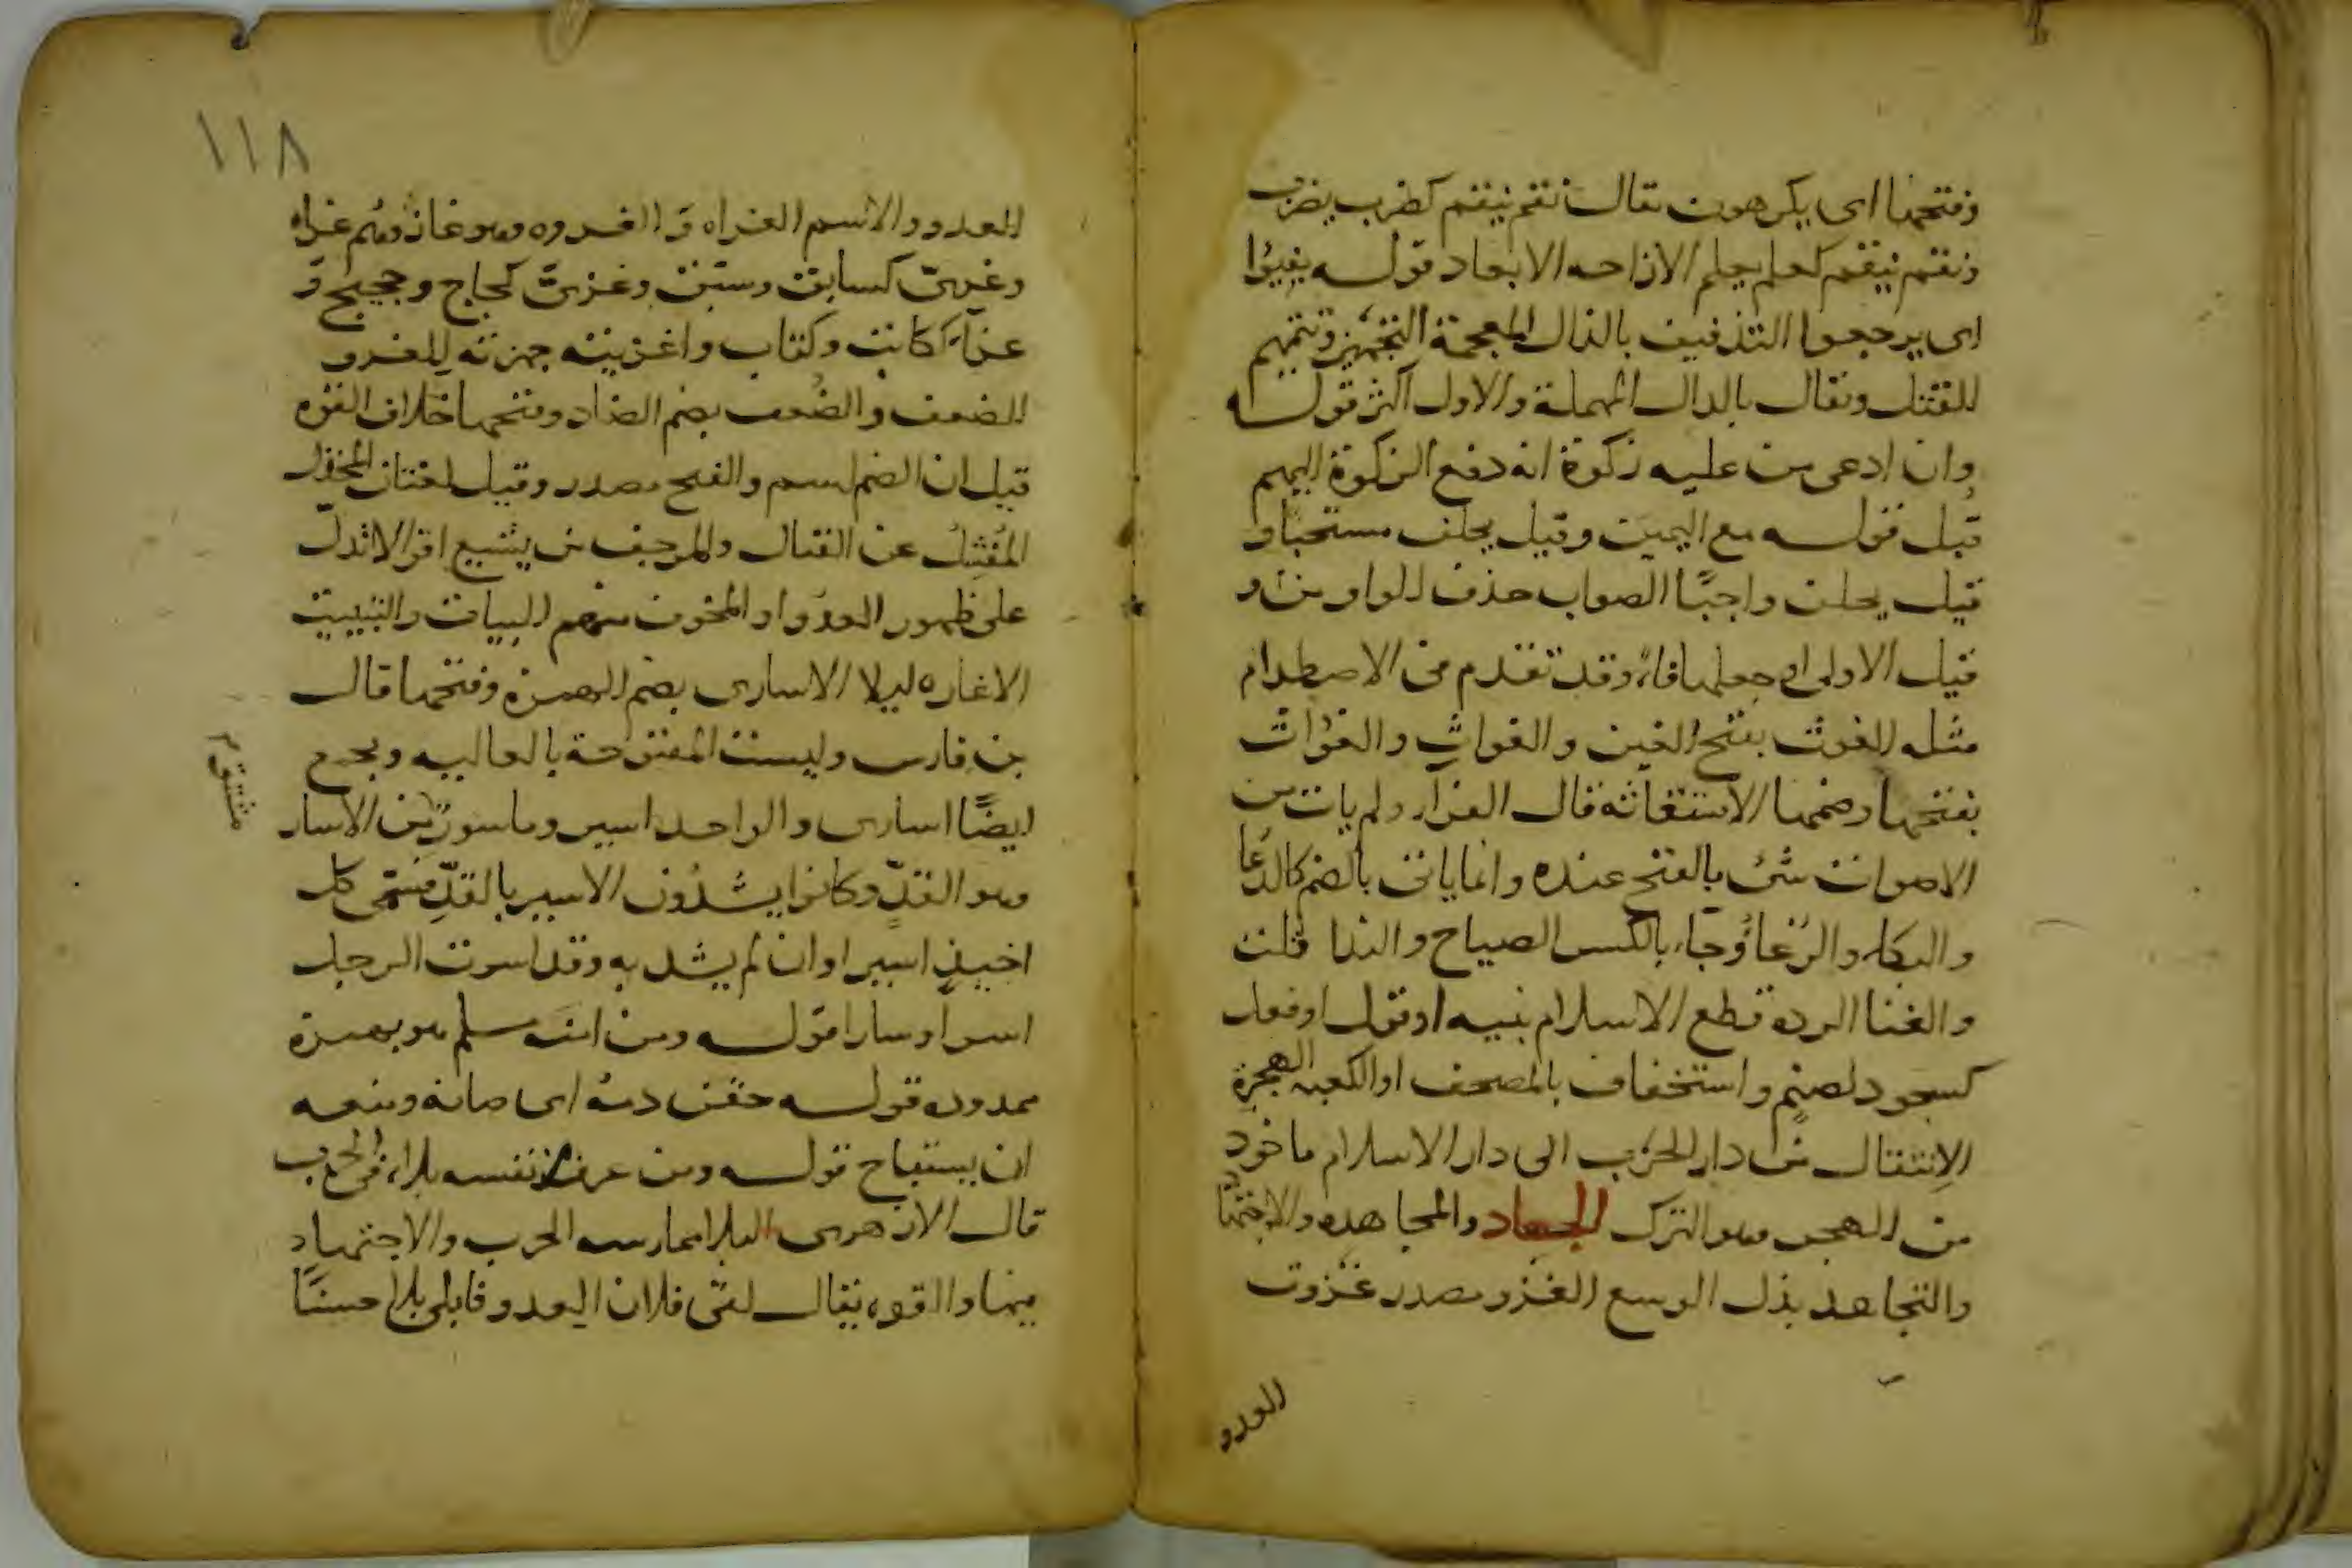 وفتحها اى يكرهون يقال نقم ينقم كضرب يضرب
ونقم ينقم كعلم يعلم الازاحه الابعاد قوله يفيؤا
اى يرجعوا التذفيف بالذال المعجمة التجهيز وتتميم
للقتل ويقال بالدال المهملة والاول اكثر قوله
وان ادعى من عليه زكوة انه دفع الزكوة اليهم
قبل قوله مع اليمين وقيل يحلف مستحبا و
قيل يحلف واجبًا الصواب حذف الواو من و
قيل الاولى او جعلها فاء وقد تقدم فى الاصطدام
مثله الغوث بفتح الغين والغواث والغُواث
بفتحها وضمها الاستغاثة قال الفراء ولم يات من
الاصوات شئ بالفتح عنده وانما ياتى بالضم كالدُعا
والبكاء والرُغاء وجاء بالكسر الصياح والندا قلت
والغنا الرده قطع الاسلام بنيه او قول او فعل
كسجود لصنم واستخفاف بالمصحف او الكعبه الهجرة
الانتقال من دار الحرب الى دار الاسلام ماخوذ
من الهجر وهو الترك الجهاد والمجاهده والاجتهاد
والتجاهد بذل الوسع الغزو مصدر غزوت
العدو
١١٨
العدو والاسم الغزاه و الغزوه وهو غاز وهم غزاه
وغزىّ كسابق وسبق وغزىّ كحاج وحجيج و
غزاء ككاتب وكتاب واغزيته جهزته للغزو
الضعف والضُعف بضم الضاد وفتحها خلاف القوه
قيل ان الضم اسم والفتح مصدر وقيل لغتان المخذل
المُفشِل عن القتال والمرجف من يشيع اقوالا تدل
على ظهور العدو او المخوف منهم البيات والتبييت
الاغاره ليلا الاسارى بضم الهمزة وفتحها قال
بن فارس وليست المفتوحة بالعاليه ويجمع
ايضًا اسارى والواحد اسير وماسور من الاسار
وهو القدّ وكانوا يشدّون الاسير بالقدِّ فسمى كل
اخيذ اسيرا وان لم يشد به وقد اسرت الرجل
اسرا وسارا قوله ومن امنه مسلم هو بهمزة
ممدوده قوله حقن دمه اى صانه ومنعه
ان يستباح قوله ومن عرف من نفسه بلاء فى الحرب
قال الازهرى البلا ممارسه الحرب والاجتهاد
فيها والقوه يقال لقى فلان العدو فابلى بلاء حسنًا